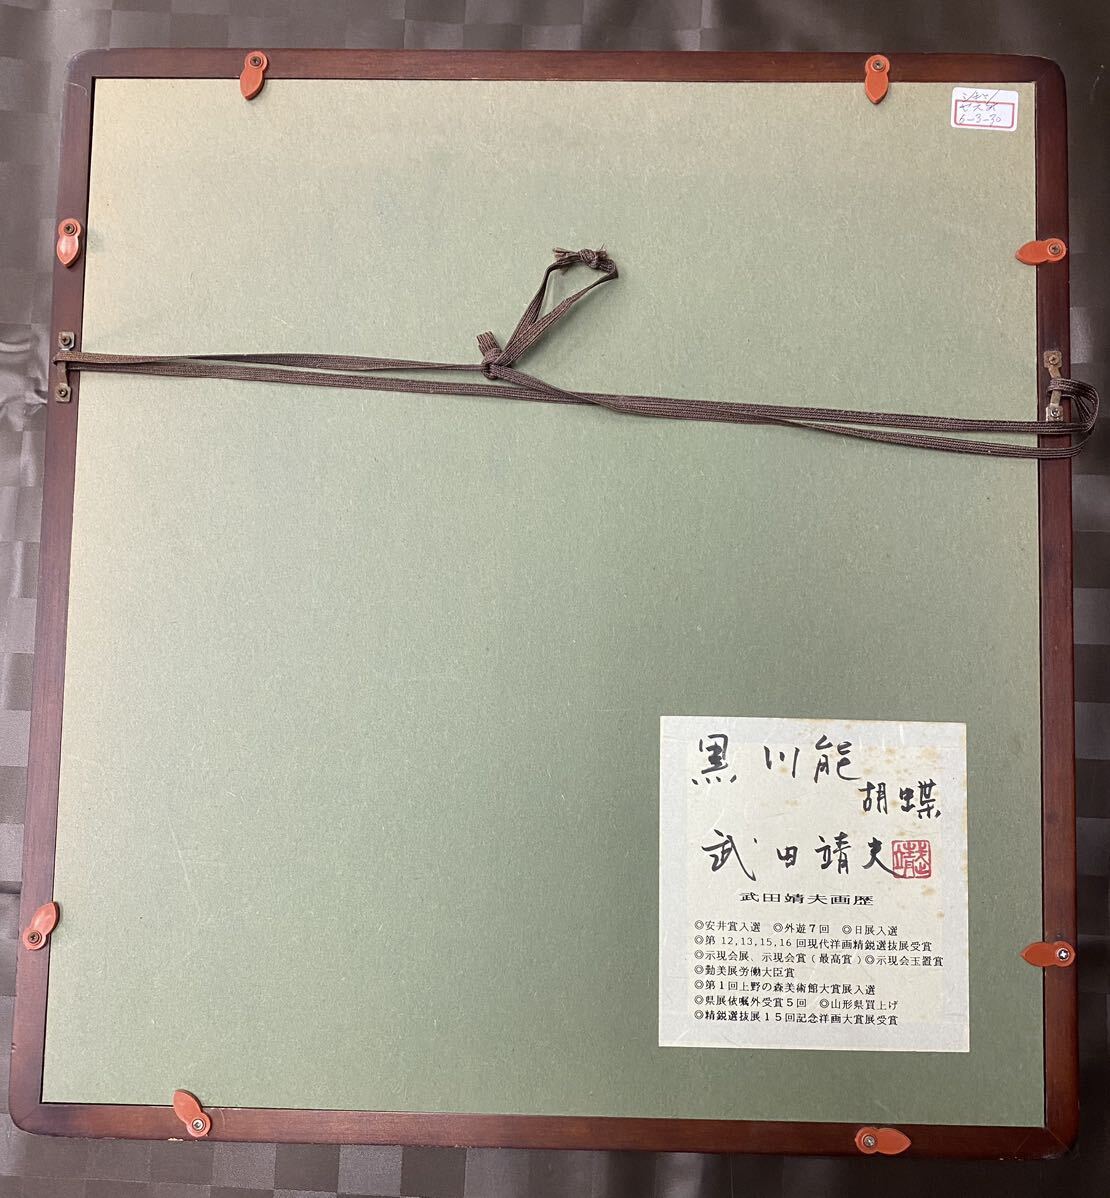 6-3-30
黒川能
胡蝶
武田靖夫
武田靖夫画歴
◎安井賞入選 ◎外遊7回 ◎日展入選
◎第12,13,15,16回現代洋画精鋭選抜展受賞
◎示現会展、示現会賞(最高賞)◎示現会玉置賞
◎勤美展労働大臣賞
◎第1回上野の森美術館大賞展入選
◎県展依嘱外受賞5回 ◎山形県買上げ
◎精鋭選抜展15回記念洋画大賞展受賞